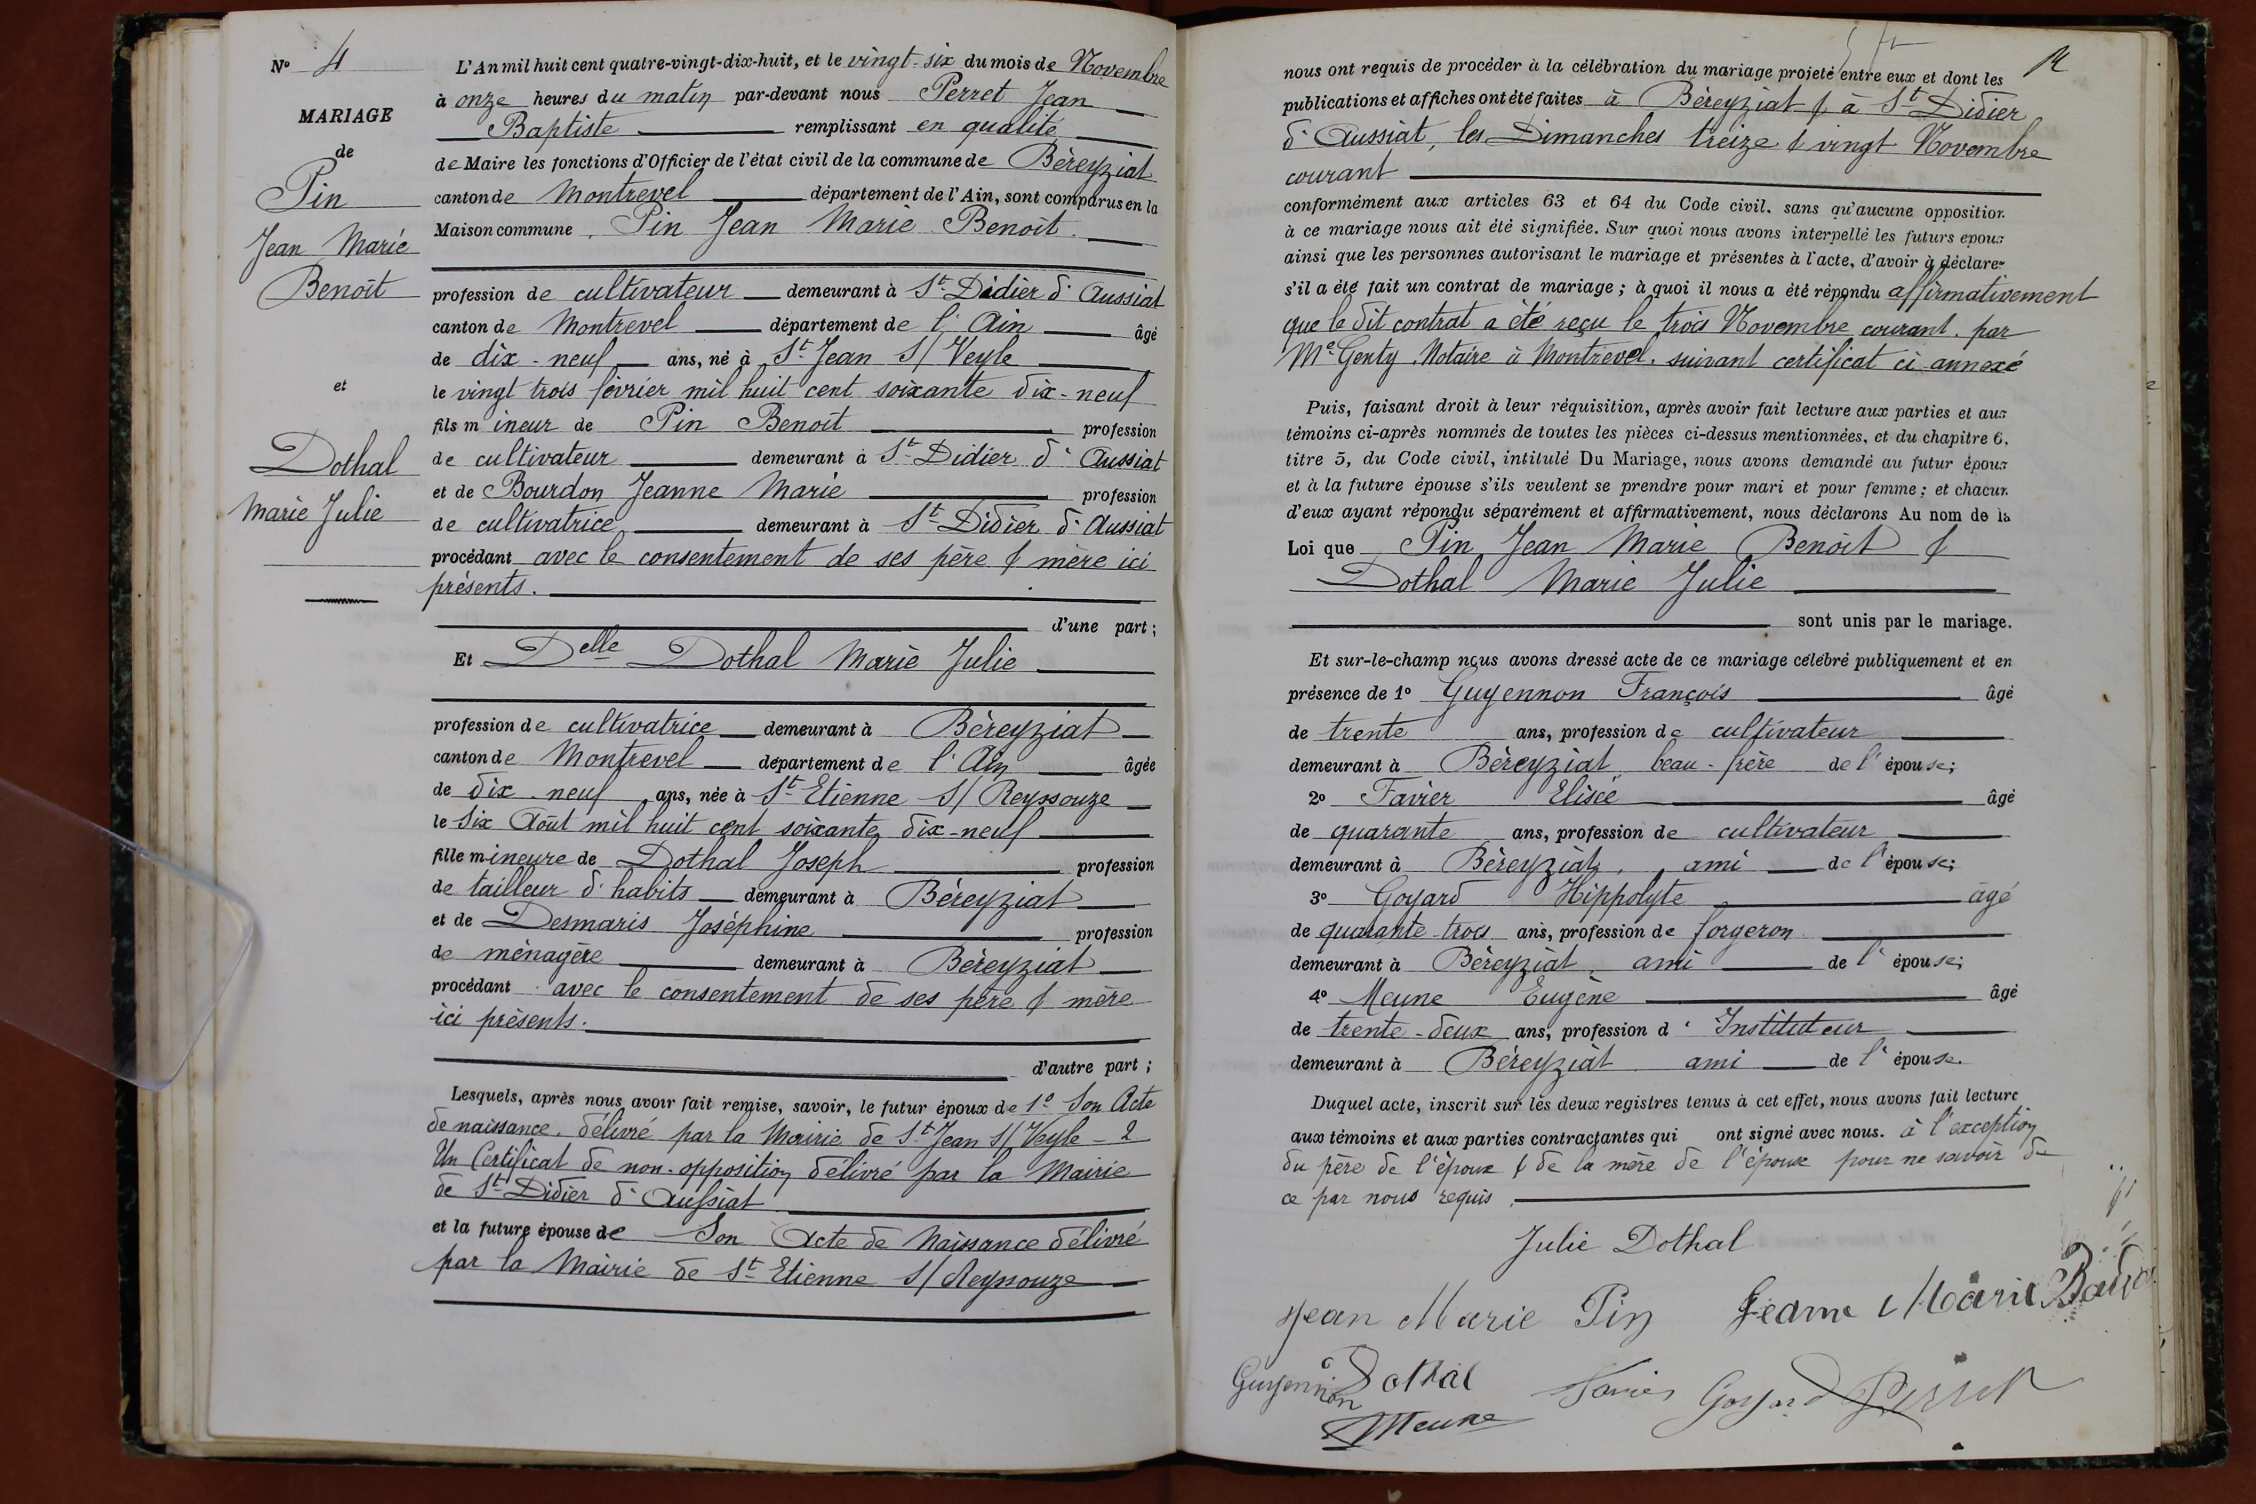 Nº 4
MARIAGE
de
Pin
Jean Marie
Benoît
et
Dothal
Marie Julie
L'An mil huit cent quatre-vingt-dix-huit, et le vingt-six du mois de Novembre
à onze heures du matin par-devant nous Perret Jean
Baptiste remplissant en qualité
de Maire les fonctions d'Officier de l'état civil de la commune de Béreyziat
canton de Montrevel département de l'Ain, sont comparus en la
Maison commune, Pin Jean Marie Benoît.
profession de cultivateur demeurant à St Didier d'Aussiat
canton de Montrevel département de l'Ain âgé
de dix-neuf ans, né à St Jean S/ Veyle
le vingt trois février mil huit cent soixante dix-neuf
fils mineur de Pin Benoît profession
de cultivateur demeurant à St Didier d'Aussiat
et de Bourdon Jeanne Marie profession
de cultivatrice demeurant à St Didier d'Aussiat
procédant avec le consentement de ses père & mère ici
présents.
d'une part;
Et Delle Dothal Marie Julie
profession de cultivatrice demeurant à Béreyziat
canton de Montrevel département de l'Ain âgée
de dix-neuf ans, née à St Etienne S/ Reyssouze
le six Août mil huit cent soixante dix-neuf
fille mineure de Dothal Joseph profession
de tailleur d'habits demeurant à Béreyziat
et de Desmaris Joséphine profession
de ménagère demeurant à Béreyziat
procédant avec le consentement de ses père & mère
ici présents.
d'autre part;
Lesquels, après nous avoir fait remise, savoir, le futur époux de 1º Son Acte
de naissance, délivré par la Mairie de St Jean S/ Veyle - 2
Un Certificat de non-opposition délivré par la Mairie
de St Didier d'Aussiat
et la future épouse de Son Acte de Naissance délivré
par la Mairie de St Etienne S/ Reyssouze
nous ont requis de procéder à la célébration du mariage projeté entre eux et dont les
publications et affiches ont été faites à Béreyziat & à St Didier
d'Aussiat, les Dimanches treize & vingt Novembre
courant
conformément aux articles 63 et 64 du Code civil. sans qu'aucune opposition
à ce mariage nous ait été signifiée. Sur quoi nous avons interpellé les futurs époux
ainsi que les personnes autorisant le mariage et présentes à l'acte, d'avoir à déclarer
s'il a été fait un contrat de mariage; à quoi il nous a été répondu affirmativement
que le dit contrat a été reçu le trois Novembre courant, par
Me Genty, Notaire à Montrevel, suivant certificat ci annexé
Puis, faisant droit à leur réquisition, après avoir fait lecture aux parties et aux
témoins ci-après nommés de toutes les pièces ci-dessus mentionnées, et du chapitre 6,
titre 5, du Code civil, intitulé Du Mariage, nous avons demandé au futur époux
et à la future épouse s'ils veulent se prendre pour mari et pour femme; et chacun
d'eux ayant répondu séparément et affirmativement, nous déclarons Au nom de la
Loi que Pin Jean Marie Benoît &
Dothal Marie Julie
sont unis par le mariage.
Et sur-le-champ nous avons dressé acte de ce mariage célébré publiquement et en
présence de 1º Guyennon François âgé
de trente ans, profession de cultivateur
demeurant à Béreyziat, beau-frère de l'épouse;
2º Favier Elisée âgé
de quarante ans, profession de cultivateur
demeurant à Béreyziat, ami de l'épouse;
3º Goyard Hippolyte âgé
de quarante trois ans, profession de forgeron
demeurant à Béreyziat, ami de l'épouse;
4º Meune Eugène âgé
de trente-deux ans, profession d'Instituteur
demeurant à Béreyziat ami de l'épouse.
Duquel acte, inscrit sur les deux registres tenus à cet effet, nous avons fait lecture
aux témoins et aux parties contractantes qui ont signé avec nous. à l'exception
du père de l'époux & de la mère de l'épouse pour ne savoir de
ce par nous requis.
Julie Dothal
Jean Marie Pin Jeanne Marie
Guyennon Dothal Favier Goyard Perret
Meune